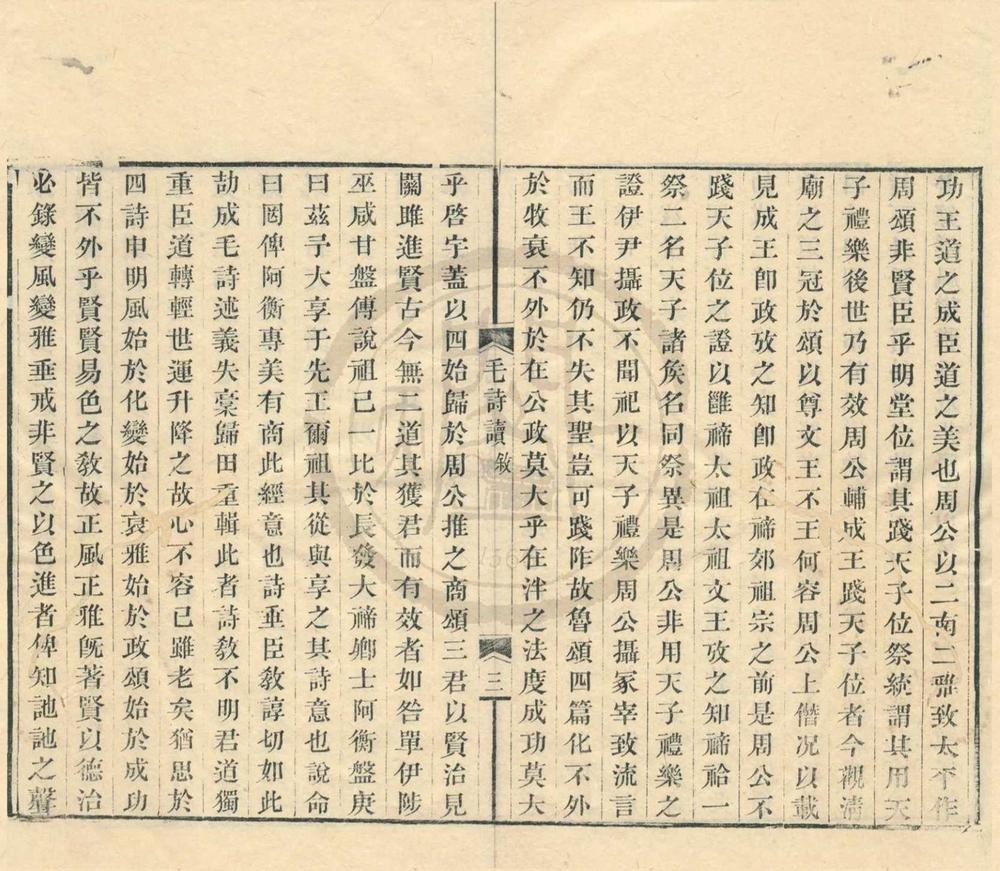 功王道之成臣道之美也周公以二南二雅致太平作
周頌非賢臣乎明堂位謂其踐天子位祭統謂其用天
子禮樂後世乃有效周公輔成王踐天子位者今觀淸
廟之三冠於頌以尊文王不王何容周公上僭况以載
見成王卽政攷之知卽政在禘郊祖宗之前是周公不
踐天子位之證以雝禘太祖太祖文王攷之知禘祫一
祭二名天子諸矦名同祭異是周公非用天子禮樂之
證伊尹攝政不聞祀以天子禮樂周公攝冢宰致流言
而王不知仍不失其聖豈可踐阼故魯頌四篇化不外
於牧衰不外於在公政莫大乎在泮之法度成功莫大
毛詩讀敘
三
乎啓宇蓋以四始歸於周公推之商頌三君以賢治見
關雎進賢古今無二道其獲君而有效者如咎單伊陟
巫咸甘盤傅說祖己一比於長發大禘鄉士阿衡盤庚
曰茲予大享于先王爾祖其從與享之其詩意也說命
曰罔俾阿衡專美有商此經意也詩重臣敎諄切如此
劼成毛詩述義失稾歸田重輯此者詩敎不明君道獨
重臣道轉輕世運升降之故心不容已雖老矣猶思於
四詩申明風始於化變始於哀雅始於政頌始於成功
皆不外乎賢賢易色之敎故正風正雅旣著賢以德治
必錄變風變雅垂戒非賢之以色進者俾知訑訑之聲